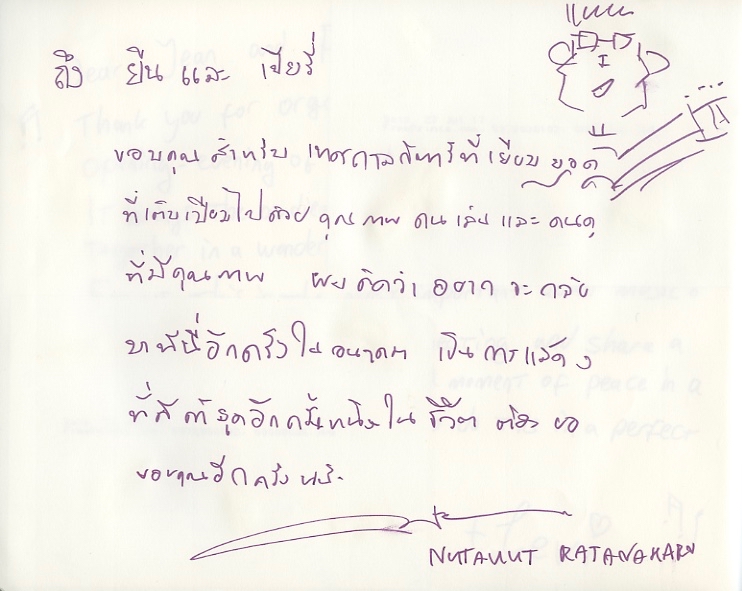 ถึง ยีน และ เปียร์รี่
ขอบคุณ สำหรับ เทศกาลกีตาร์ที่เยี่ยมยอด
ที่เต็มเปี่ยมไปด้วย คุณภาพ คนเล่น และ คนดู
ที่มีคุณภาพ ผมคิดว่า อยาก จะ กลับ
มาที่นี่อีกครั้ง ใน อนาคต เป็น การแสดง
ที่ดีที่สุดอีกครั้งหนึ่งใน ชีวิต ต้อง ขอ
ขอบคุณอีกครั้ง ครับ
NUTAVUT RATANAKARN